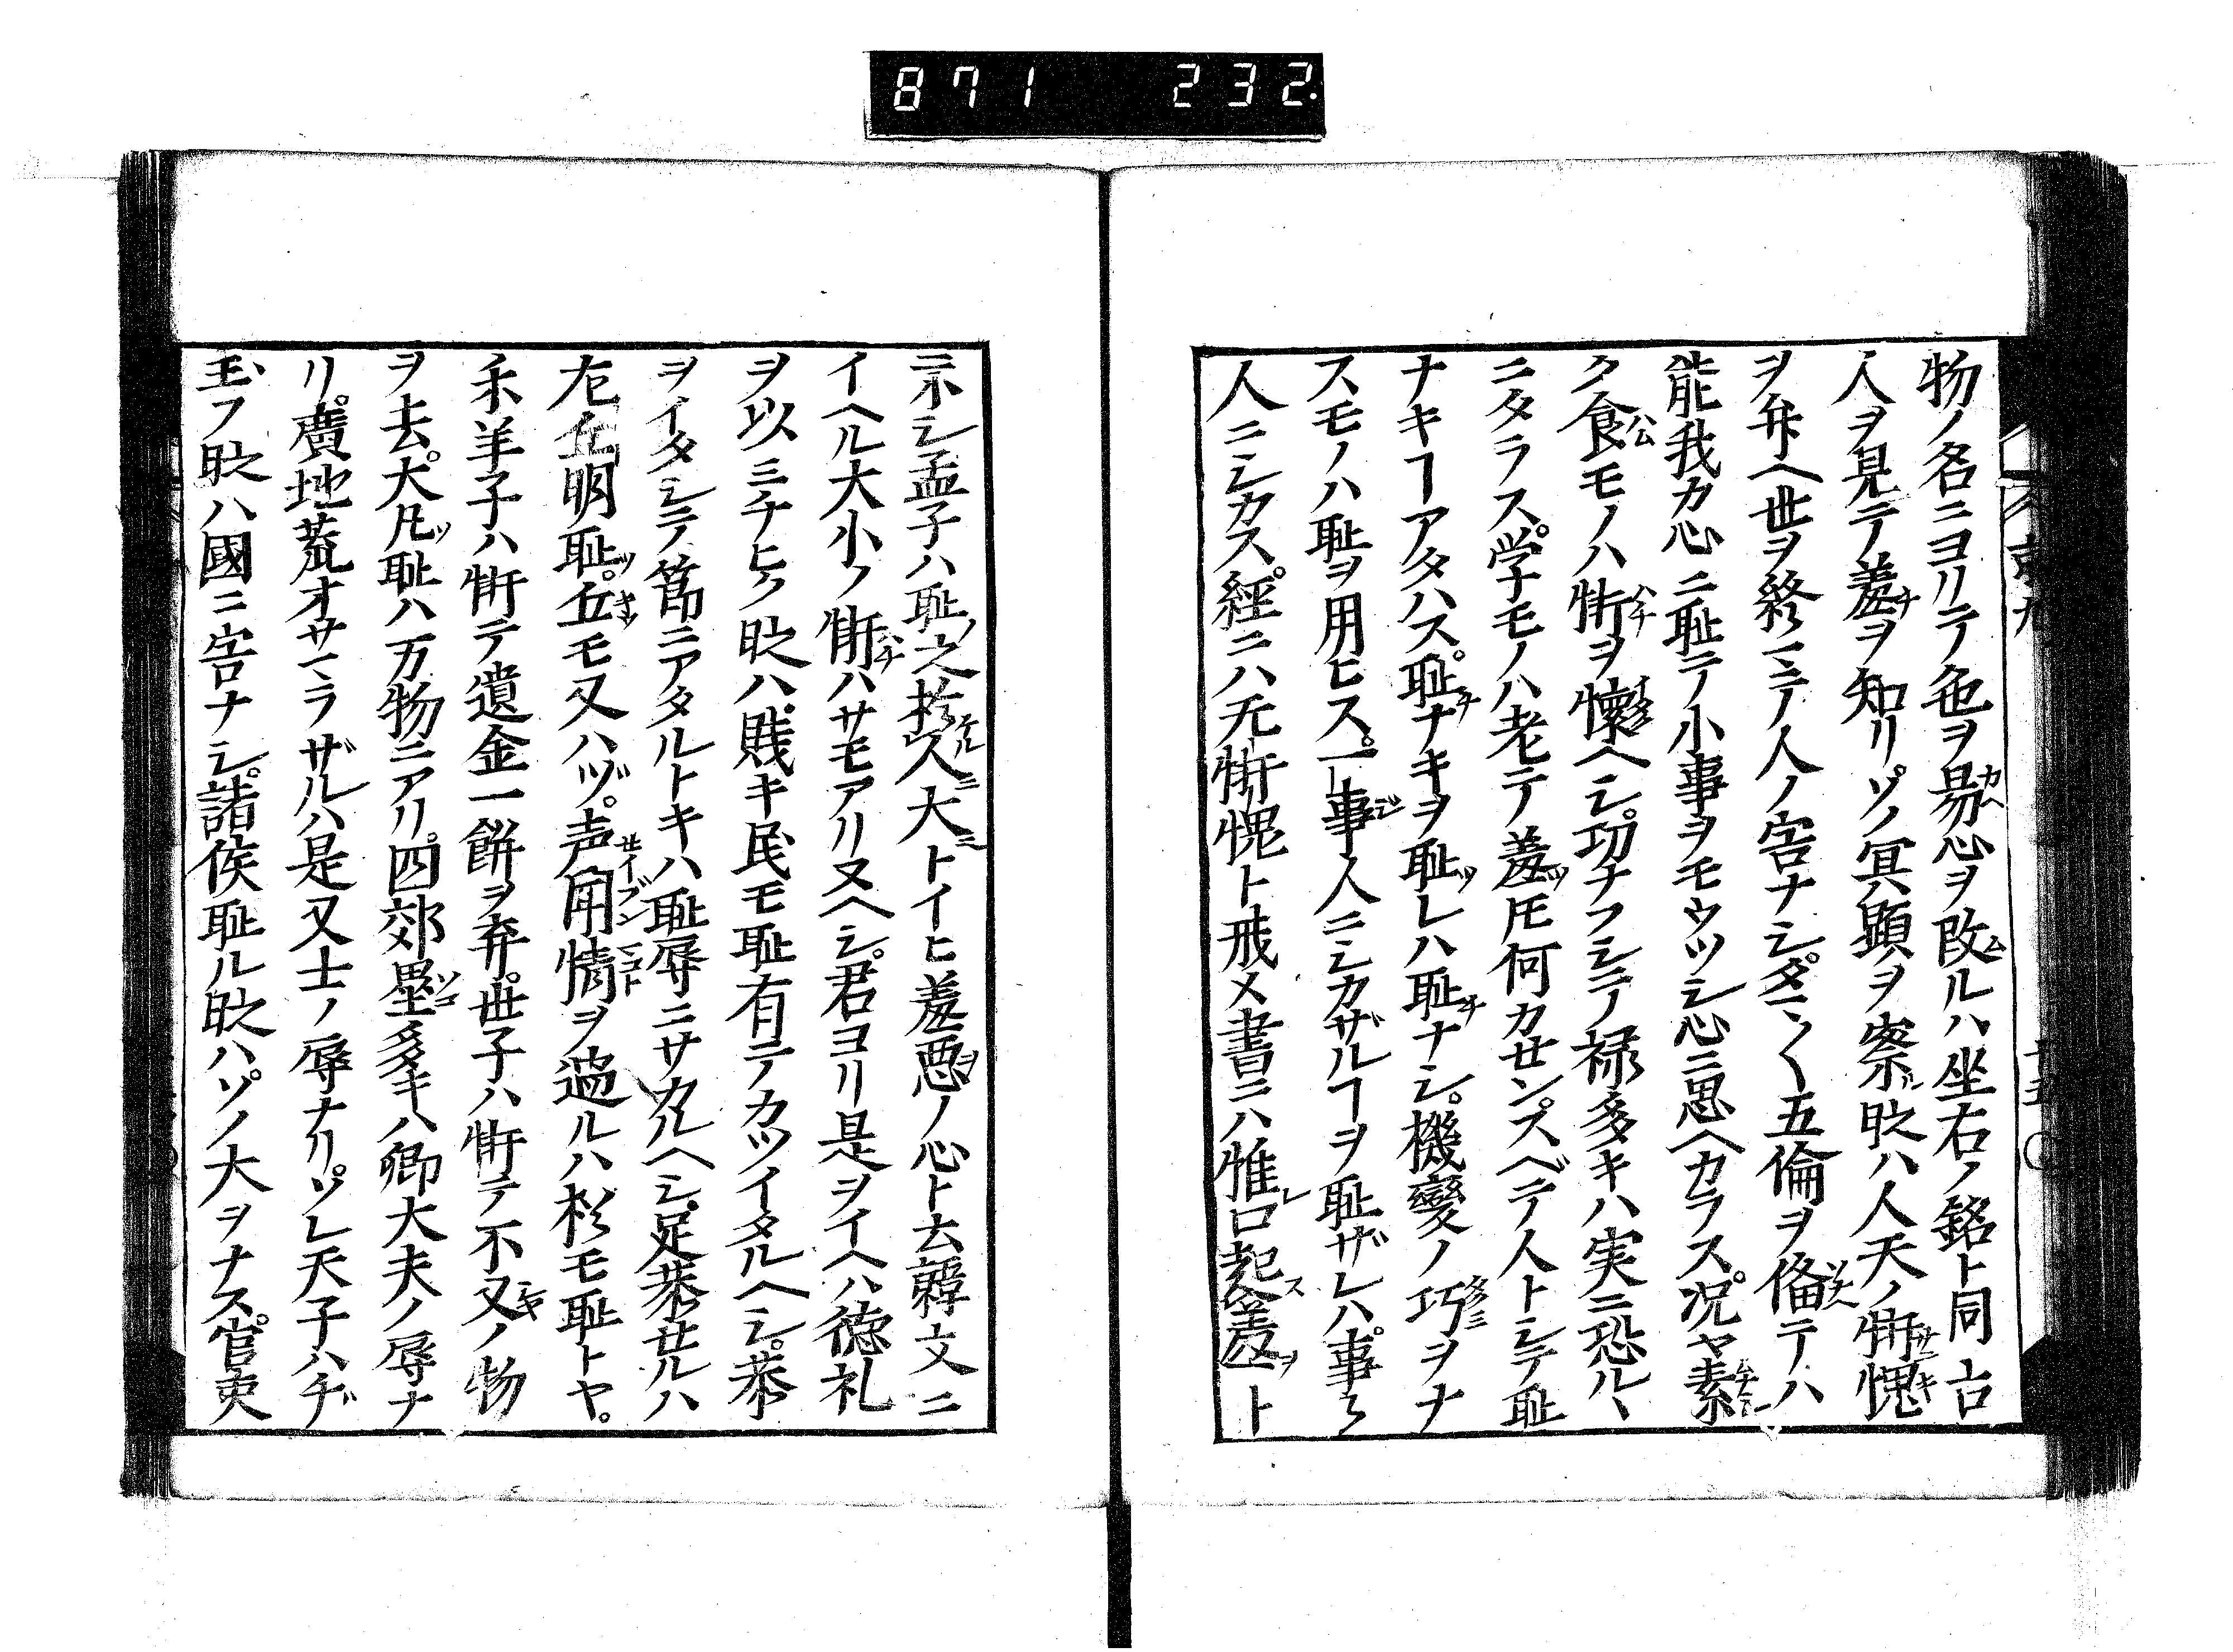 871 232.
物ノ名ニヨリテ色ヲ易心ヲ改ルハ坐右ノ銘ト同古
人ヲ見テ羞ヲ知リソノ冥顕ヲ察時ハ人天ノ慚愧
ヲ弁ヘ世ヲ終マテ人ノ害ナシタマ〱五倫ヲ備テハ
能我カ心ニ恥テ小事ヲモウツシ心ニ思ヘカラス況ヤ素
ク食モノハ慚ヲ懐ヘシ功ナフシテ禄多キハ実ニ恐ル丶
ニタラス学ナモノハ老テ羞ヅ𪜈何カセンスベテ人トシテ恥
ナキヿアタハス恥ナキヲ恥レハ恥ナシ機變ノ巧ヲナ
スモノハ恥ヲ用ヒス一ト事人ニシカザルヿヲ恥ザレハ事々
人ニシカス經ニハ无慚愧ト戒メ書ニハ惟口起羞ト
示シ孟子ハ恥之於人大トイヒ羞悪ノ心ト云韓文ニ
イヘル大小ノ慚ハサモアリヌヘシ君ヨリ是ヲイヘハ徳礼
ヲ以ミチヒク時ハ賎キ民モ恥有テカツイタルヘシ恭
ヲイタシテ節ニアタルトキハ恥辱ニサカルヘシ足恭セルハ
左丘明恥丘モ又ハヅ声聞情ヲ過ルハ於モ恥トヤ
禾羊子ハ慚テ遺金一餅ヲ弃世子ハ慚テ不又ノ物
ヲ去大凡恥ハ万物ニアリ四郊壘多キハ卿大夫ノ辱ナ
リ廣地荒オサマラザルハ是又士ノ辱ナリソレ天子ハヂ
玉フ時ハ國ニ害ナシ諸侯恥ル時ハソノ大ヲナス官吏